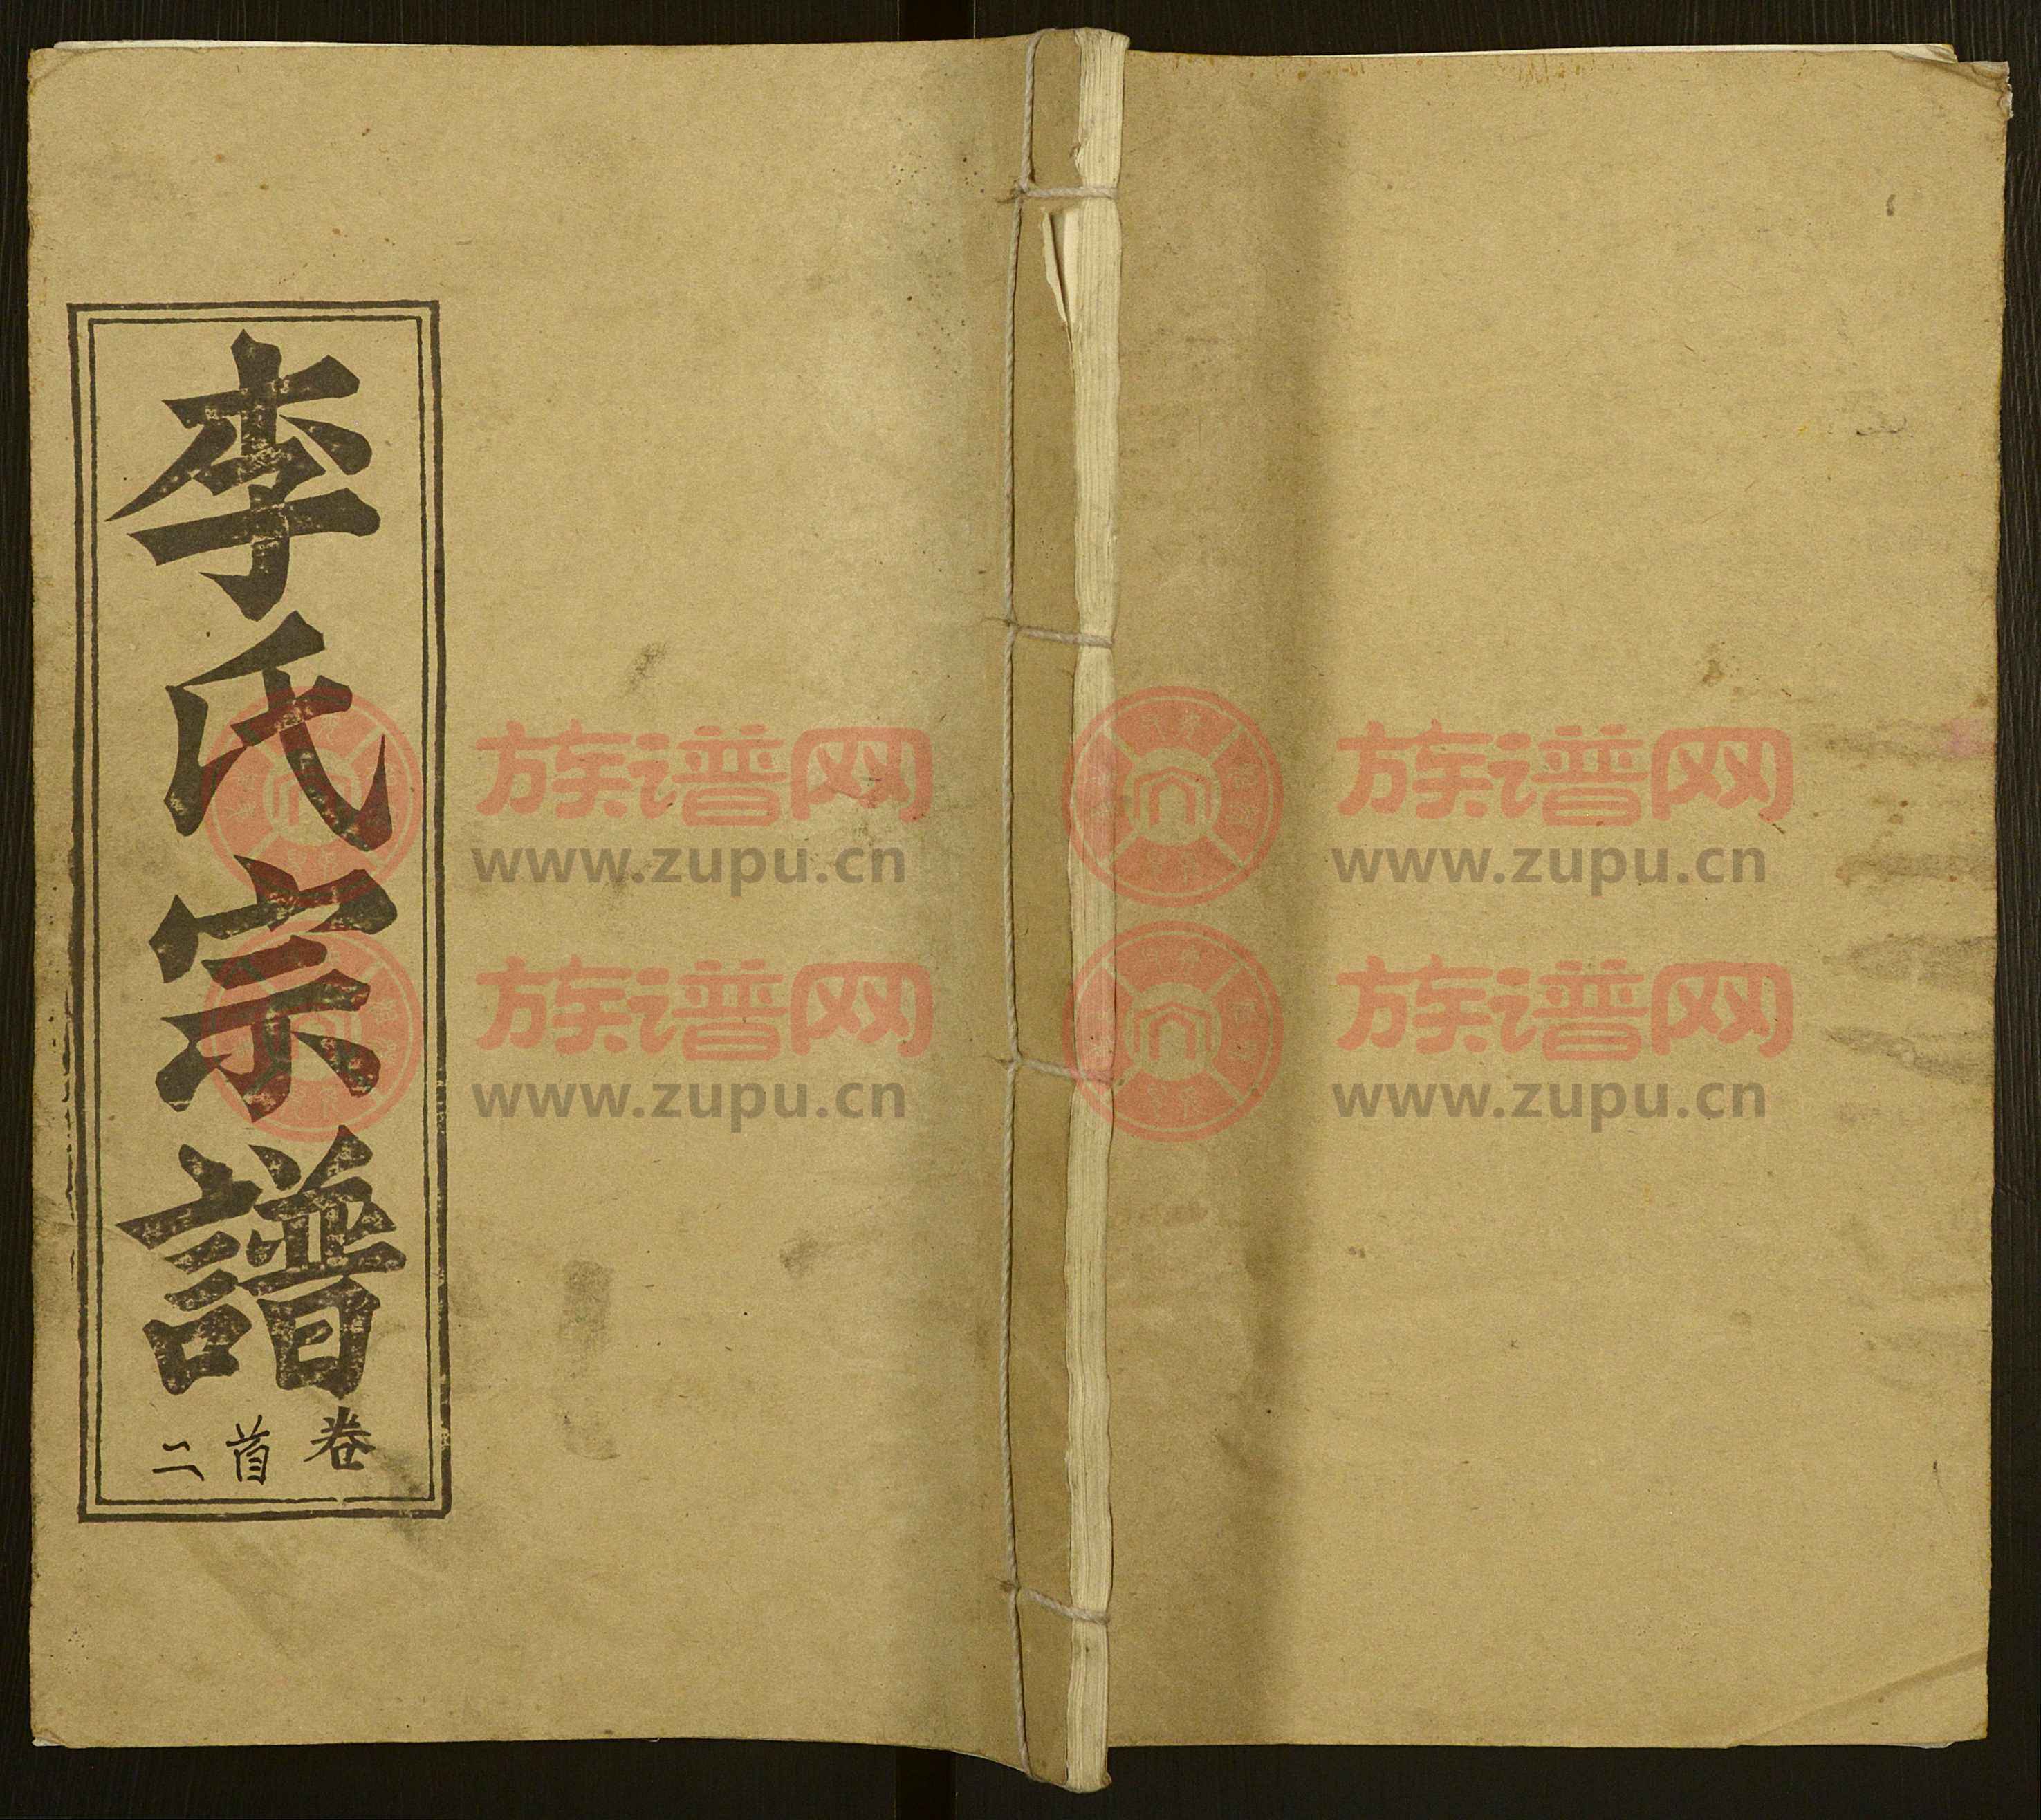 李氏宗譜
卷首二
族谱网
www.zupu.cn
族谱网
www.zupu.cn
族谱网
www.zupu.cn
族谱网
www.zupu.cn